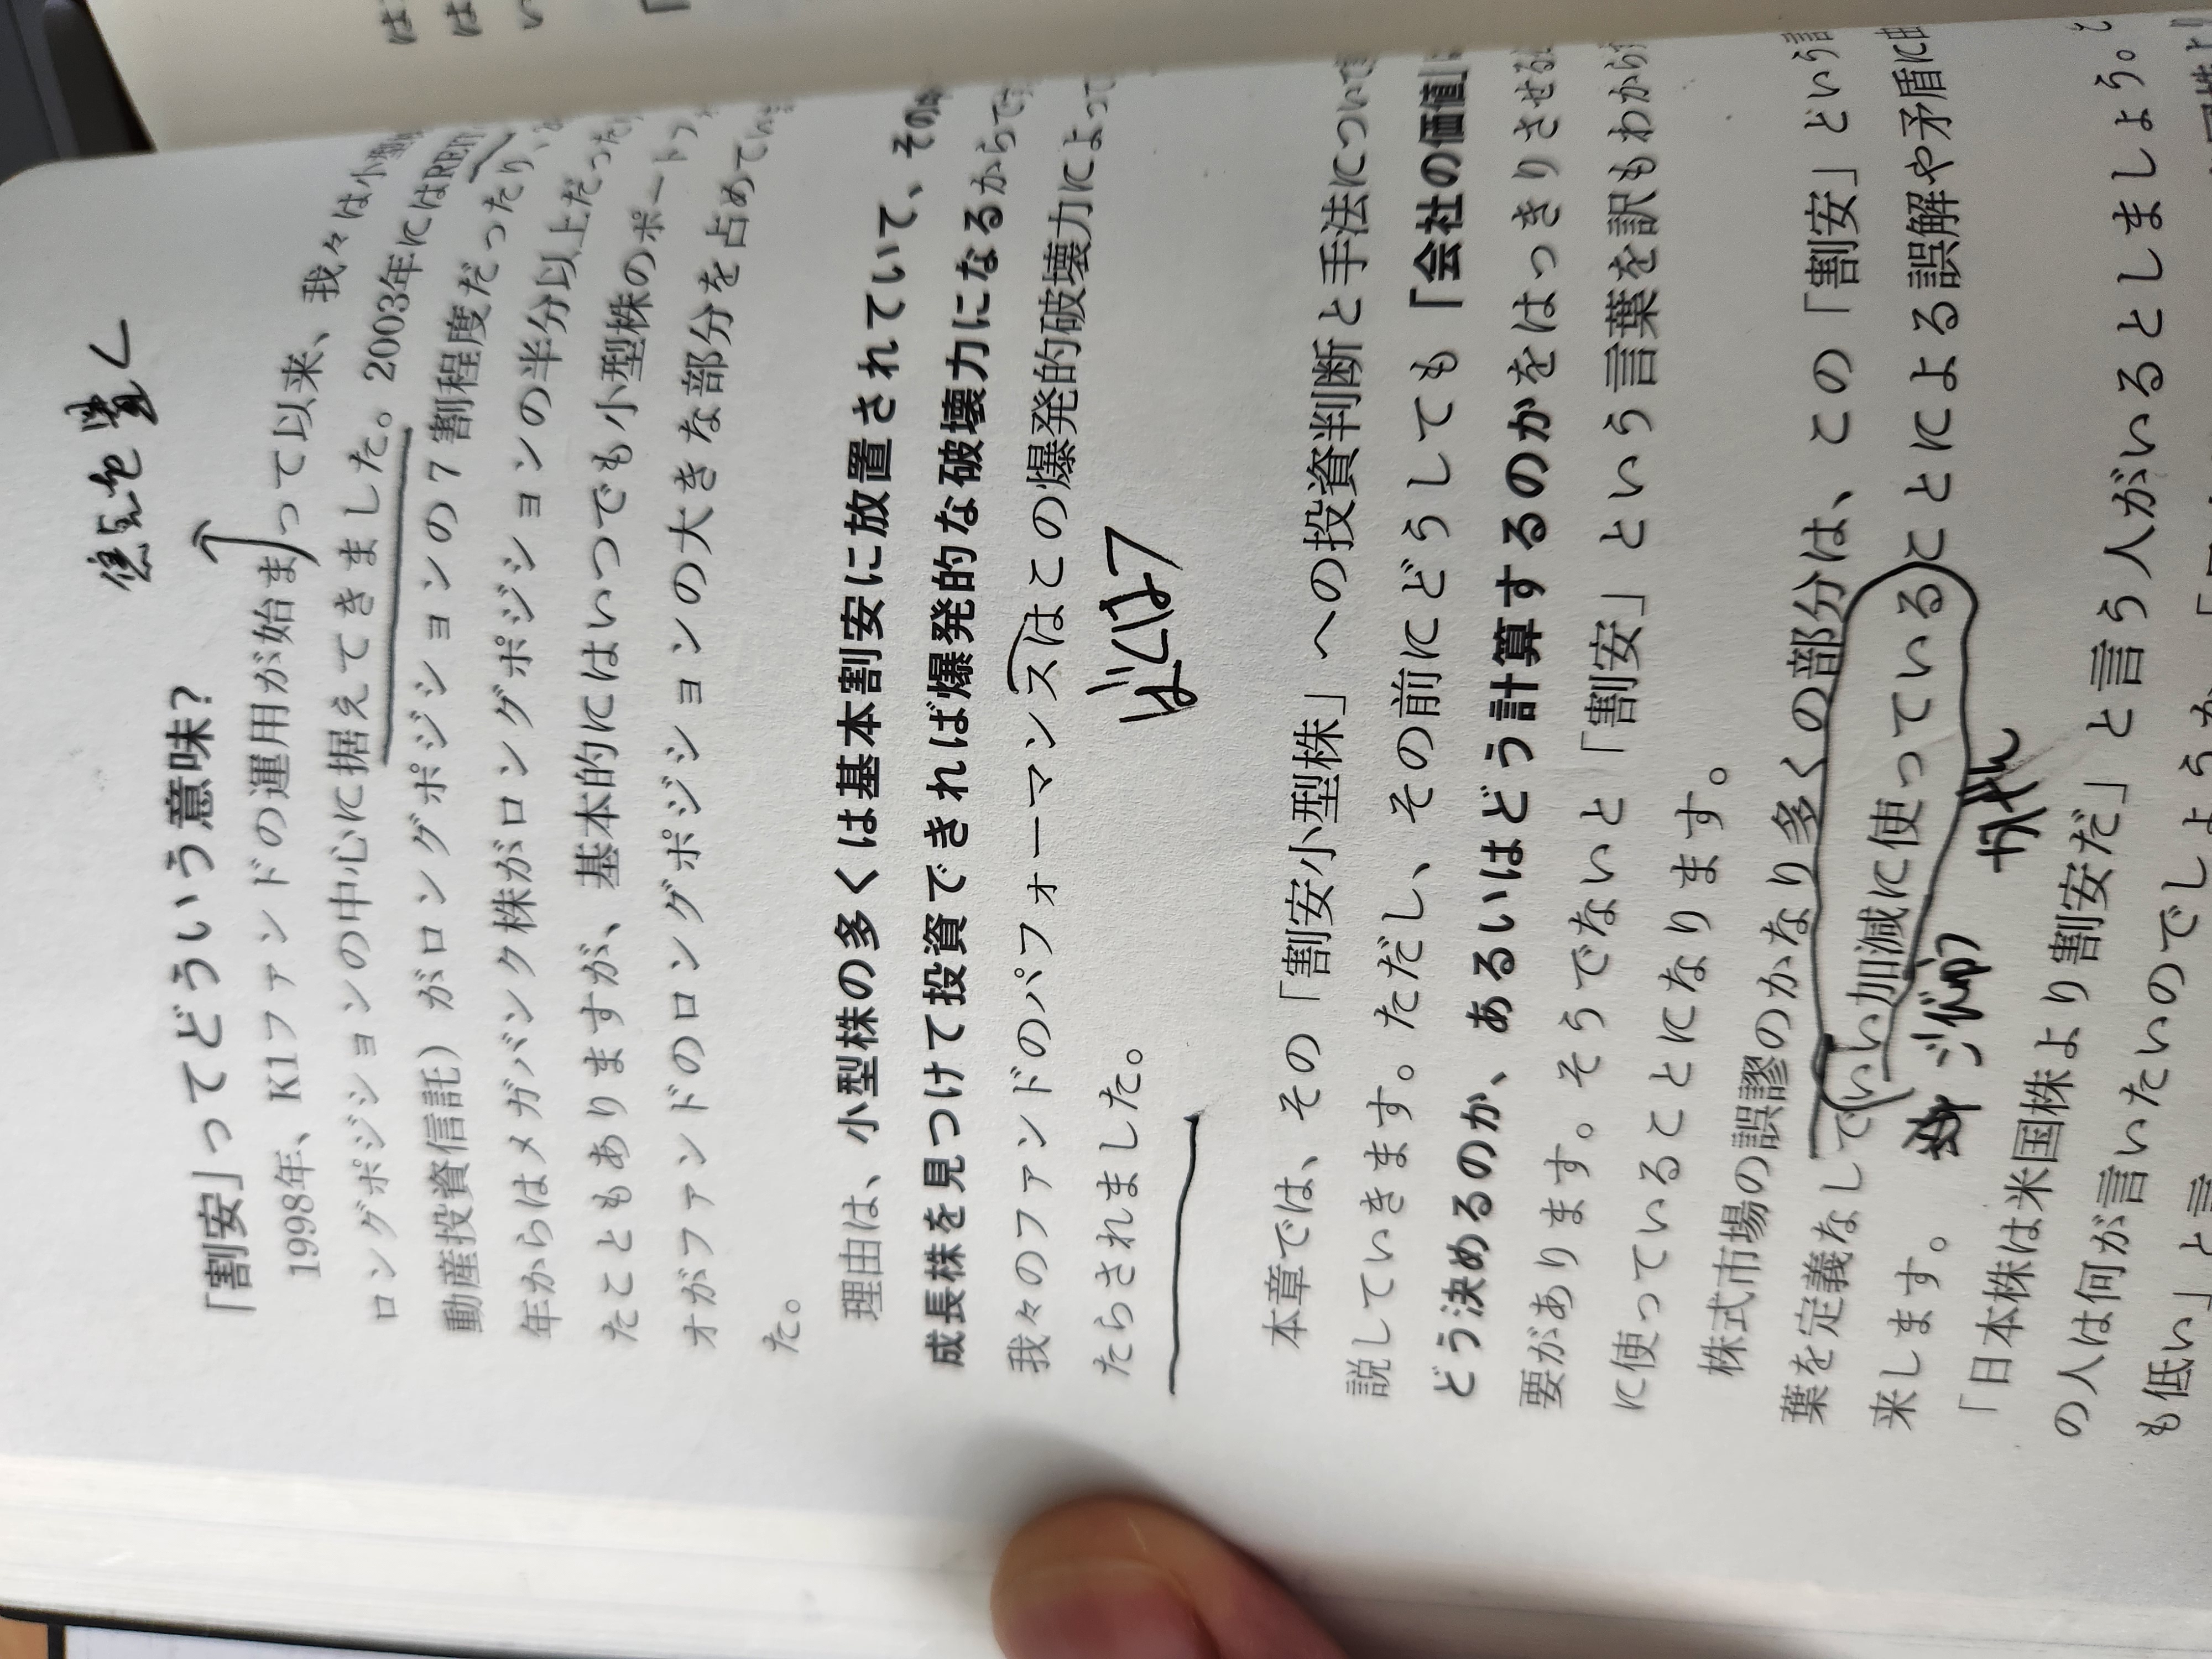 焦点を置く
「割安」ってどういう意味?
1998年、K1ファンドの運用が始まって以来、我々は小型
ロングポジションの中心に据えてきました。2003年にはREIT
動産投資信託)がロングポジションの7割程度だったり、
年からはメガバンク株がロングポジションの半分以上だった
たこともありますが、基本的にはいつでも小型株のポートフ
オがファンドのロングポジションの大きな部分を占めて
た。
理由は、小型株の多くは基本割安に放置されていて、その
成長株を見つけて投資できれば爆発的な破壊力になるからで
我々のファンドのパフォーマンスはこの爆発的破壊力によって
たらされました。
本章では、その「割安小型株」への投資判断と手法について
説していきます。ただし、その前にどうしても「会社の価値
どう決めるのか、あるいはどう計算するのかをはっきりさせる
要があります。そうでないと「割安」という言葉を訳もわから
に使っていることになります。
株式市場の誤謬のかなり多くの部分は、この「割安」という言
葉を定義なしでいい加減に使っていることによる誤解や矛盾に由
来します。
かげん
「日本株は米国株より割安だ」と言う人がいるとしましょう。
の人は何が言いたいのでしょうか
も低い」と言